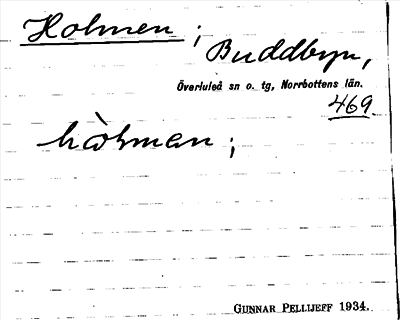 Holmen;
Buddbyn,
Överluleå sn o. tg, Norrbottens län.
469
hòlman;
GUNNAR PELLIJEFF 1934.